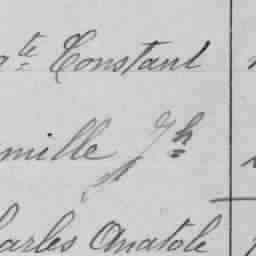 te Constant
mille Jh
harles Anatole